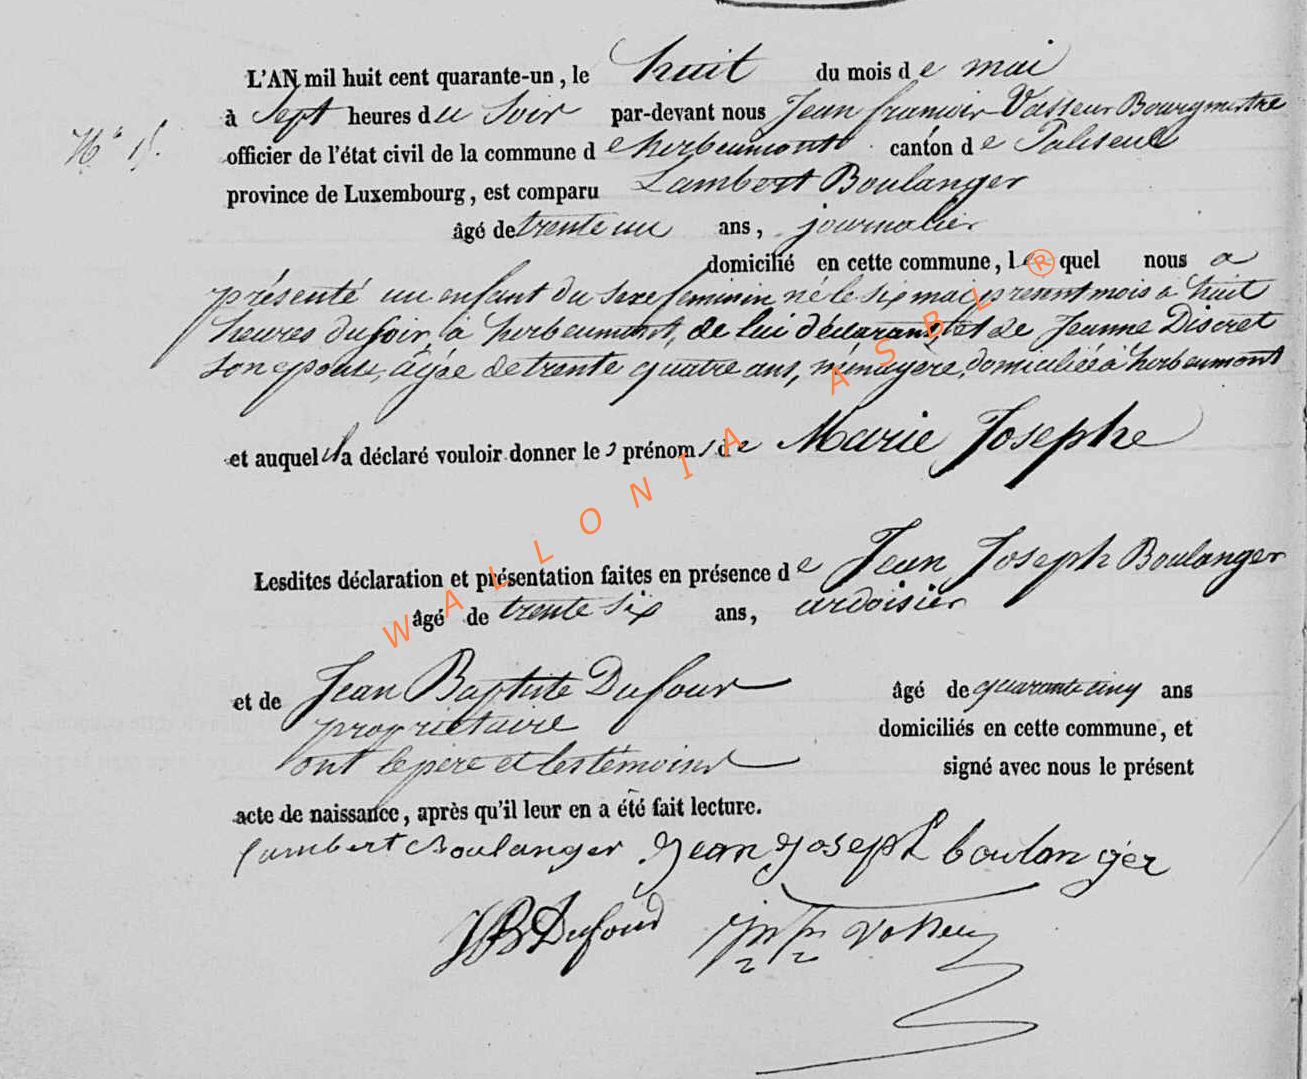 L'AN mil huit cent quarante-un, le huit du mois de mai
à Sept heures du soir par-devant nous Jean francois Vasseur Bourgmestre
N° 15.
officier de l'état civil de la commune de herbeumont canton de Paliseul
province de Luxembourg, est comparu Lambert Boulanger
âgé de trente un ans, journalier
domicilié en cette commune, lequel nous a
présenté un enfant du sexe feminin né le six mai present mois à huit
heures du soir, à herbeumont, de lui déclarant, et de Jeanne Discret
son epouse, âgée de trente quatre ans, ménagère, domiciliée à herbeumont
et auquel il a déclaré vouloir donner les prénoms de Marie Josephe
Lesdites déclaration et présentation faites en présence de Jean Joseph Boulanger
âgé de trente six ans, ardoisier
et de Jean Baptiste Dufour âgé de quarante cinq ans
propriétaire domiciliés en cette commune, et
ont le pere et les témoins signé avec nous le présent
acte de naissance, après qu'il leur en a été fait lecture.
Lambert Boulanger Jean joseph boulanger
JB Dufour
WALLONIA ASBL ®